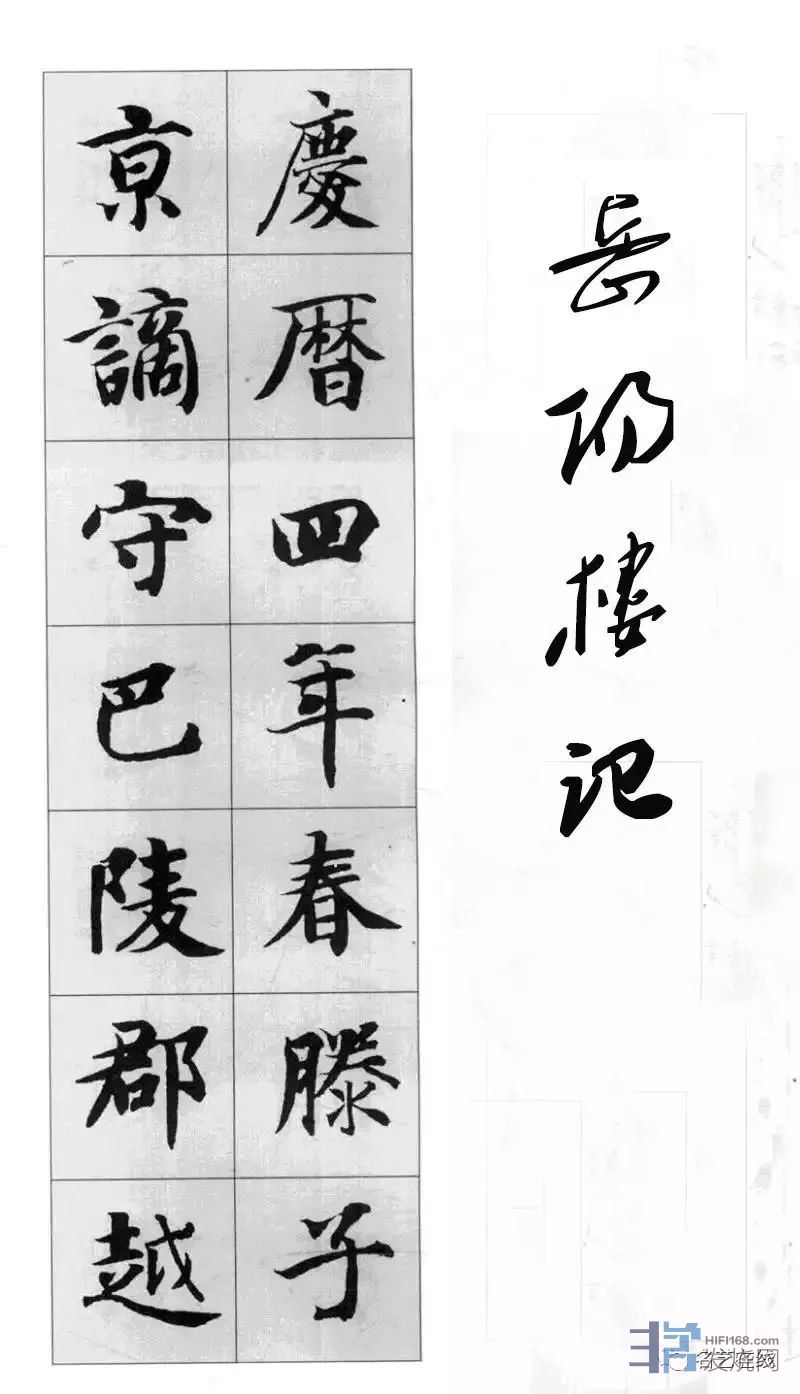 岳阳楼记
慶曆四年春滕子
京謫守巴陵郡越
HIFI168.com